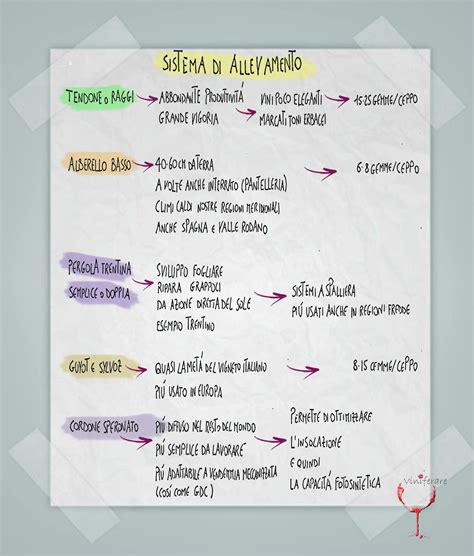 SISTEMA DI ALLEVAMENTO
TENDONE O RAGGI ABBONDANTE PRODUTTIVITÁ VINI POCO ELEGANTI 15·25 GEMME/CEPPO
GRANDE VIGORIA MARCATI TONI ERBACEI
ALBERELLO BASSO 40·60 CM DA TERRA 6·8 GEMME/CEPPO
A VOLTE ANCHE INTERRATO (PANTELLERIA)
CLIMI CALDI NOSTRE REGIONI MERIDIONALI
ANCHE SPAGNA E VALLE RODANO
PERGOLA TRENTINA SVILUPPO FOGLIARE
SEMPLICE O DOPPIA RIPARA GRAPPOLI SISTEMI A SPALLIERA
DA AZIONE DIRETTA DEL SOLE PIÚ USATI ANCHE IN REGIONI FREDDE
ESEMPIO TRENTINO
GUYOT E SYLVOZ QUASI LA METÁ DEL VIGNETO ITALIANO 8·15 GEMME/CEPPO
PIÚ USATO IN EUROPA
CORDONE SPERONATO PIÚ DIFFUSO NEL RESTO DEL MONDO PERMETTE DI OTTIMIZZARE
PIÚ SEMPLICE DA LAVORARE L'INSOLAZIONE
PIÚ ADATTABILE A VENDEMMIA MECCANIZZATA E QUINDI
(COSÍ COME GDC) LA CAPACITÁ FOTOSINTETICA
Viniferare